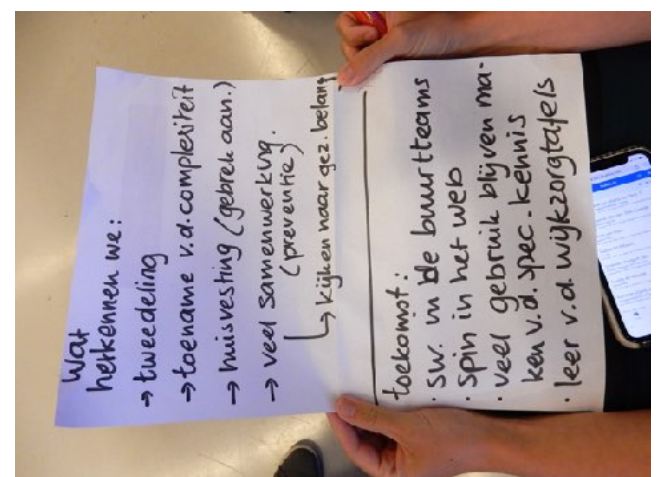 Wat
herkennen we:
→ tweedeling
→ toename v.d. complexiteit
→ huisvesting (gebrek aan.)
→ veel samenwerking.
(preventie)
↳ kijken naar gez. belang
toekomst:
· sw. in de buurtteams
· spin in het web
· veel gebruik blijven ma-
ken v.d. spec. kennis
· leer v.d. wijkzorgtafels